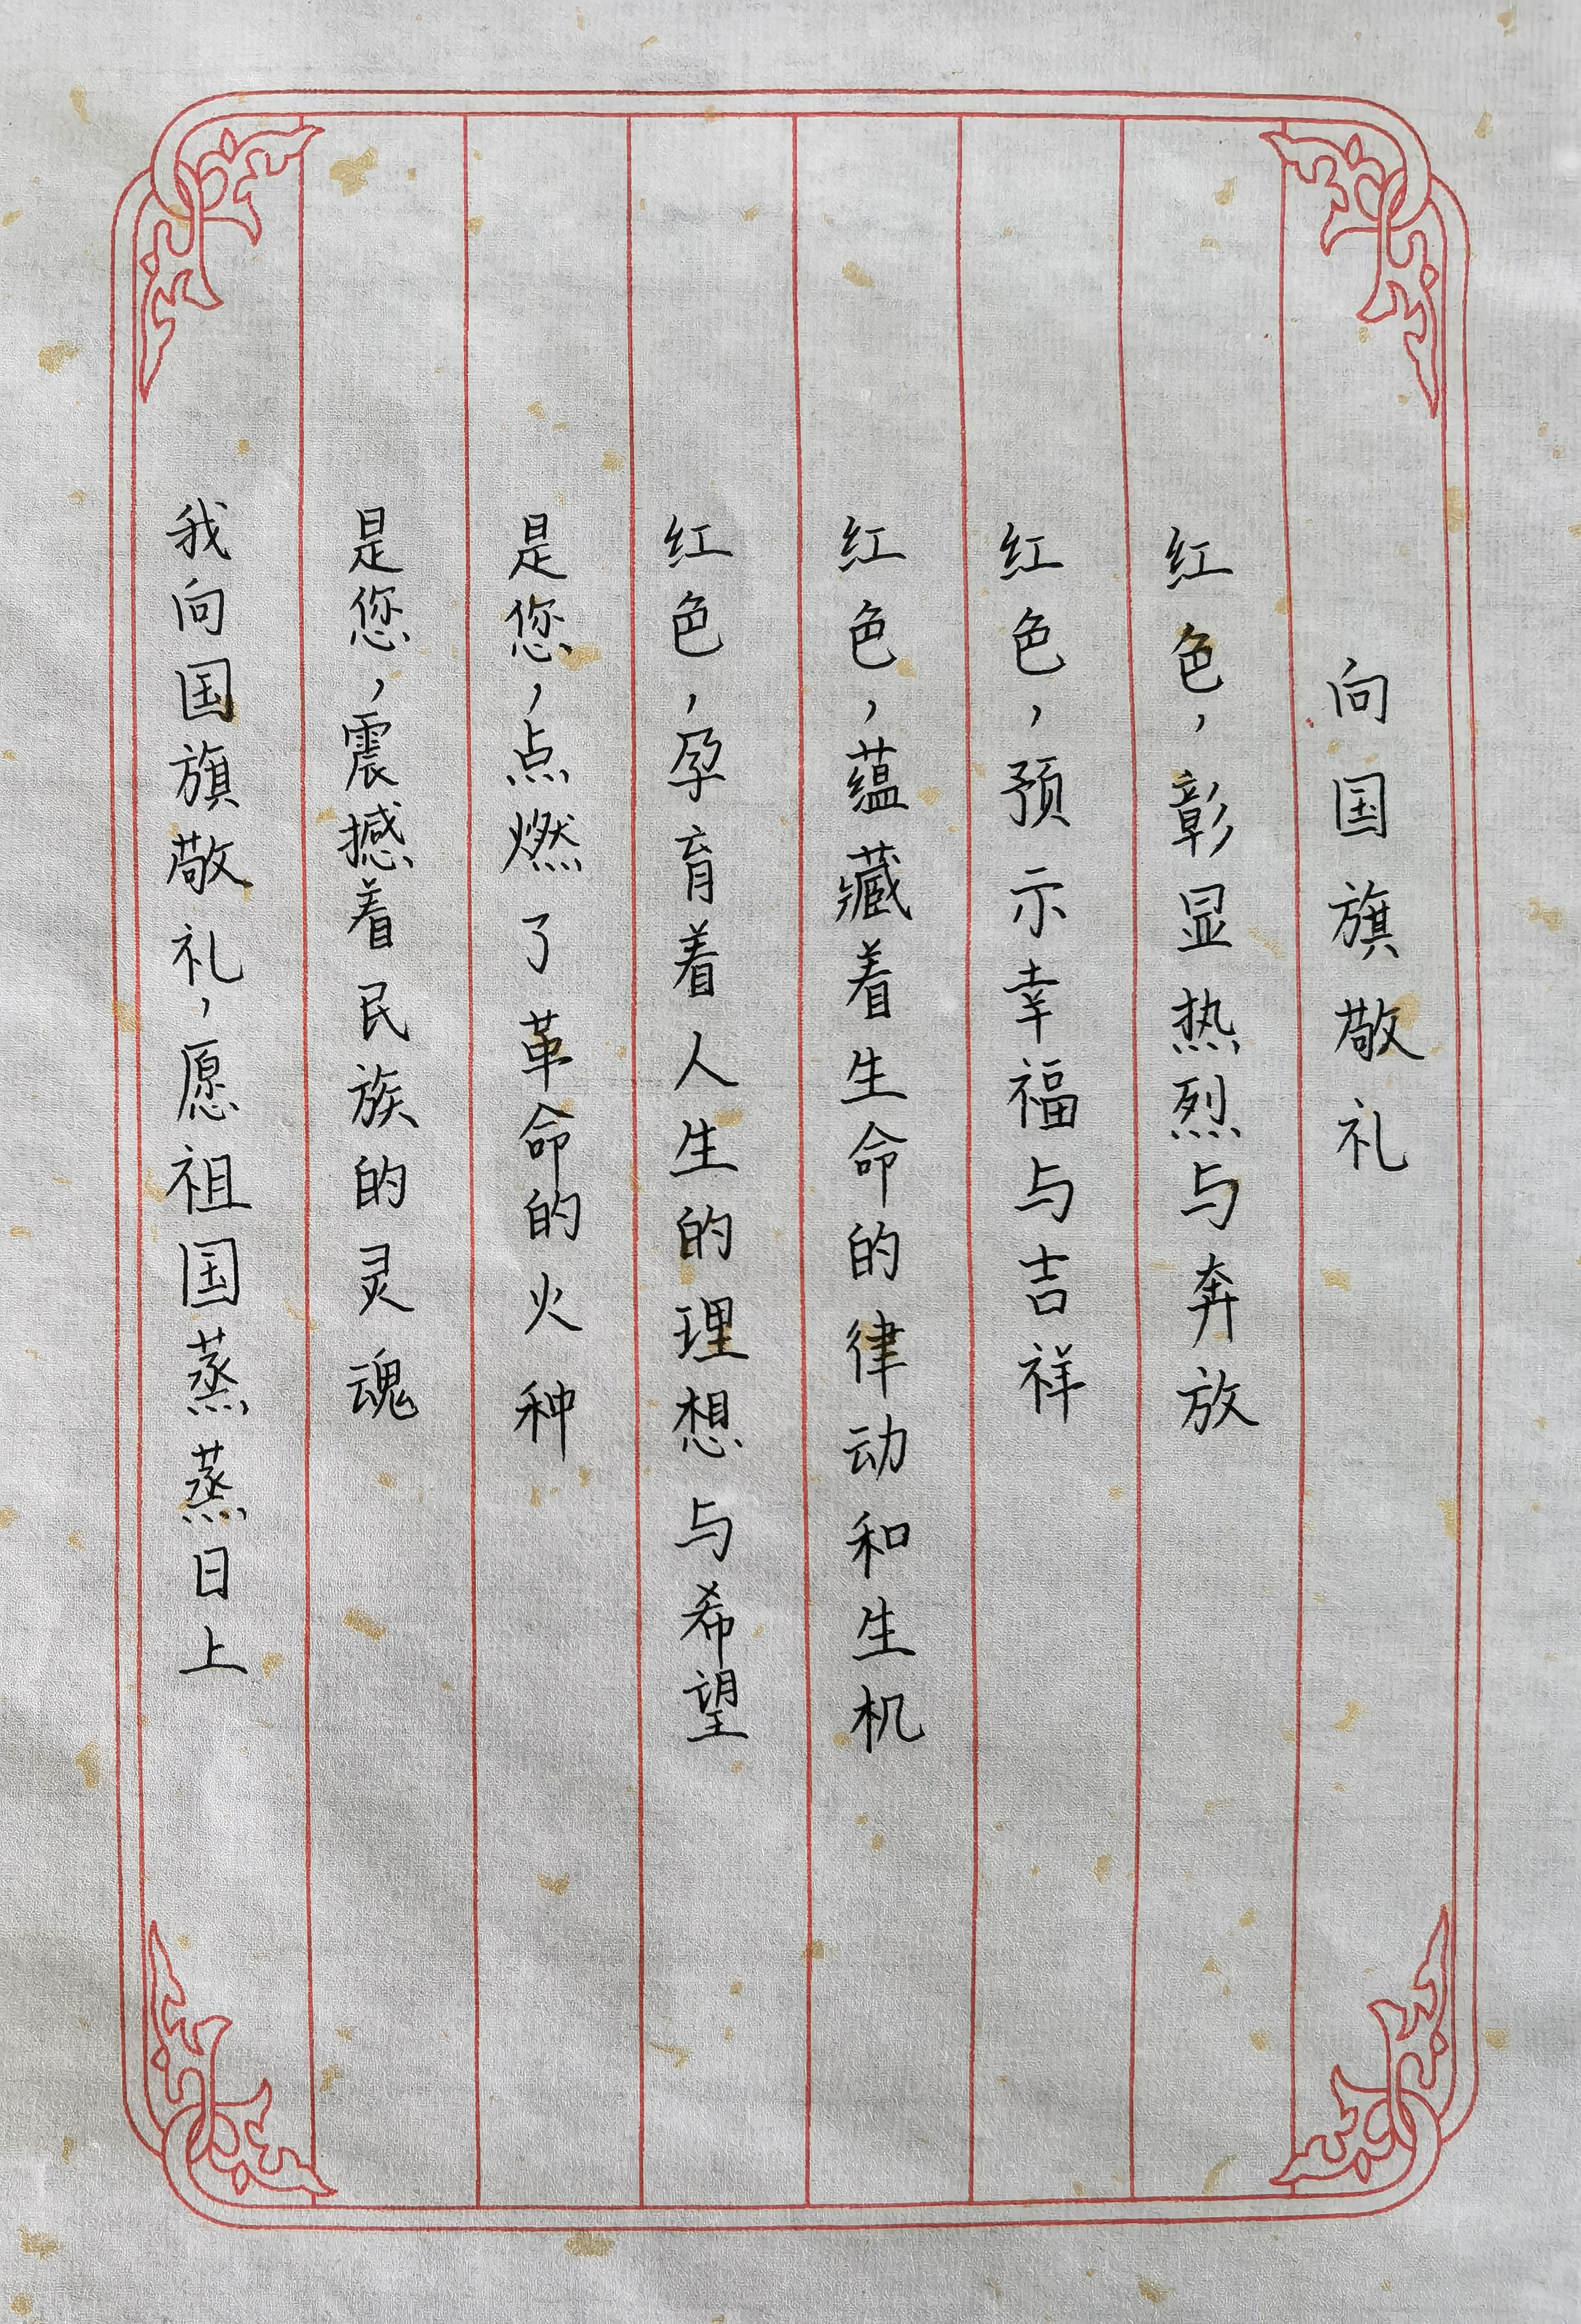 向国旗敬礼
红色，彰显热烈与奔放
红色，预示幸福与吉祥
红色，蕴藏着生命的律动和生机
红色，孕育着人生的理想与希望
是您，点燃了革命的火种
是您，震撼着民族的灵魂
我向国旗敬礼，愿祖国蒸蒸日上